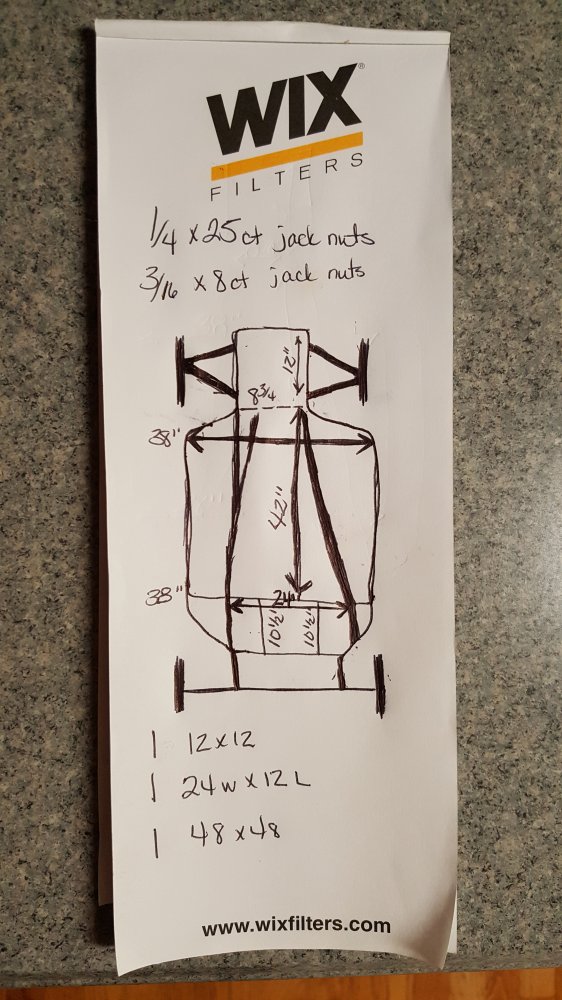 WIX®
FILTERS
1/4 x 25ct jack nuts
3/16 x 8ct jack nuts
12"
8 3/4
38"
42"
38"
24"
10 1/2"
10 1/2"
1 12x12
1 24w x 12L
1 48x48
www.wixfilters.com